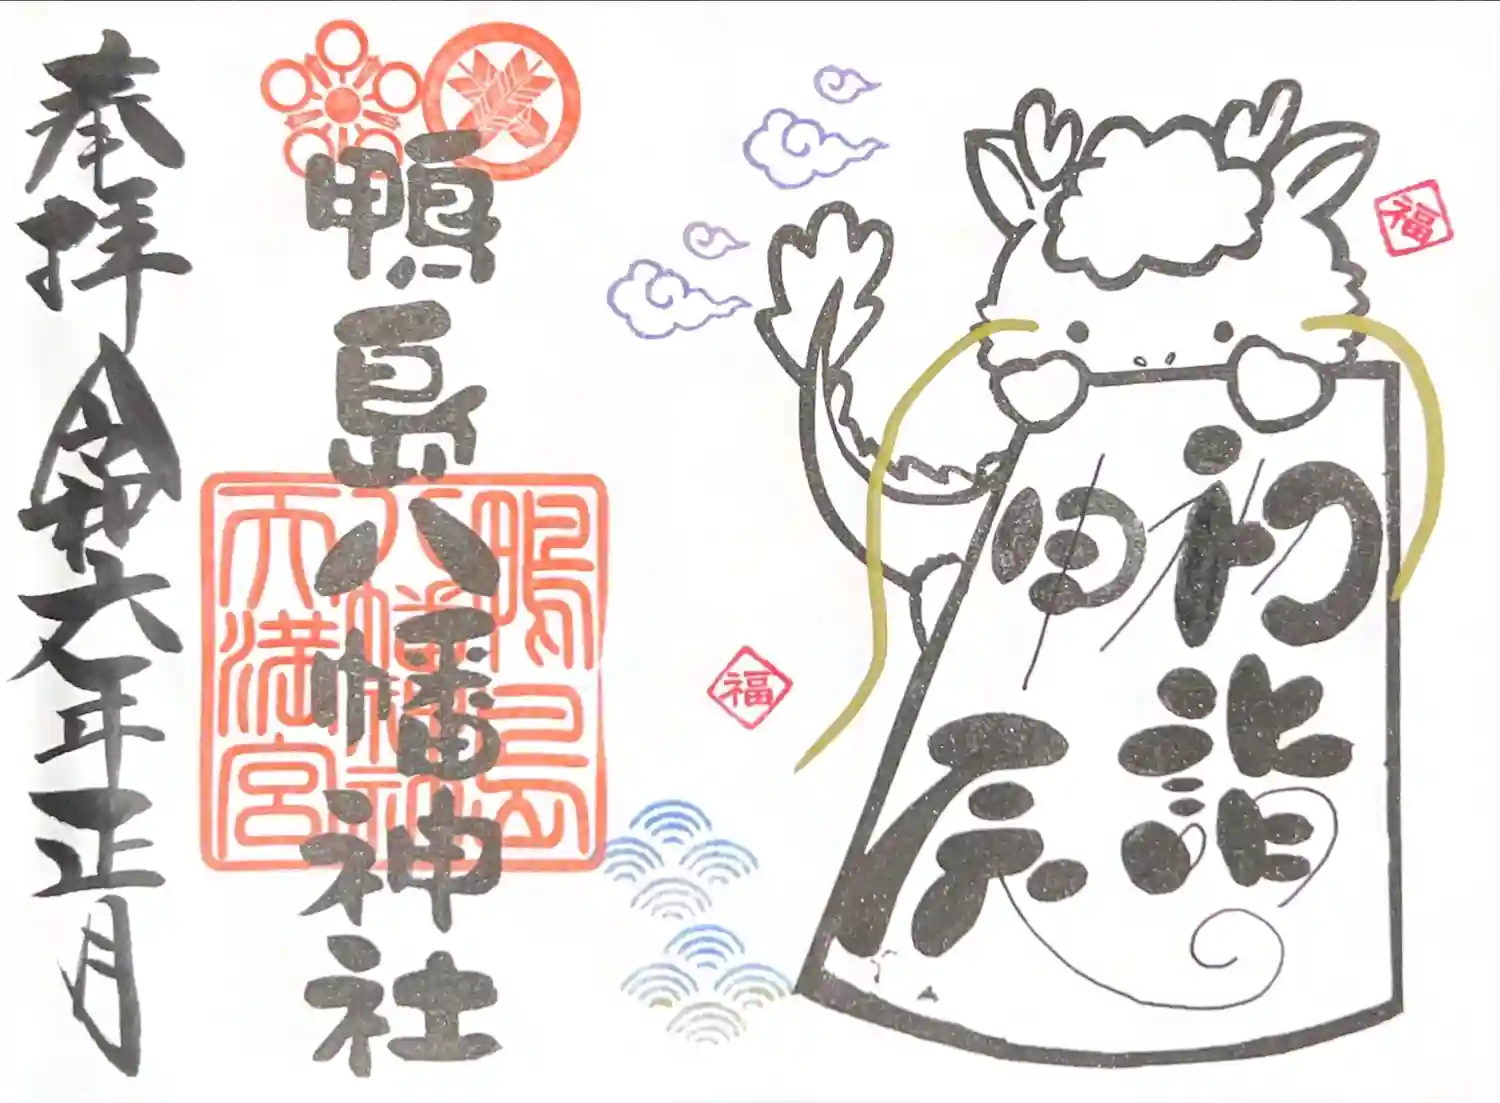 福
初詣
甲辰
福
鴨島八幡神社
鴨島
八幡神社
天満宮
奉拝 令和六年正月